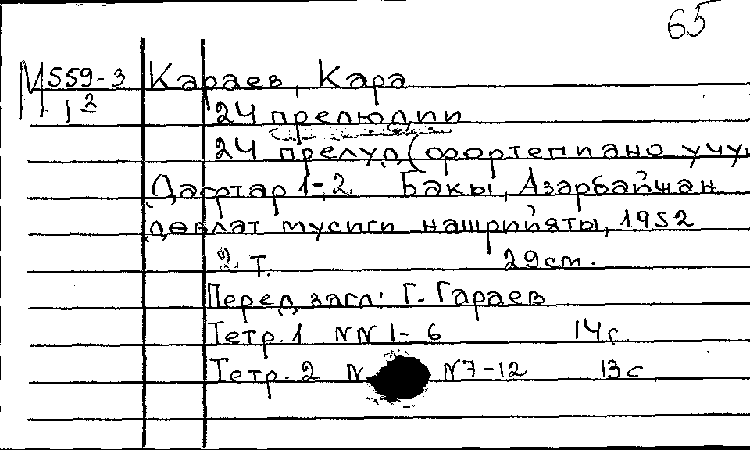 65
М 559-3 Караев, Кара
1 2 24 прелюдии
24 прелуд (фортепиано учун
Дафтар 1-2. Бакы, Азәрбайҹан
дөвлат мусиги нашрийяты, 1952
2 т. 29 cm.
Перед загл: Г. Гараев
Тетр. 1 NN 1-6 14 с
Тетр. 2 N N7-12 13 с